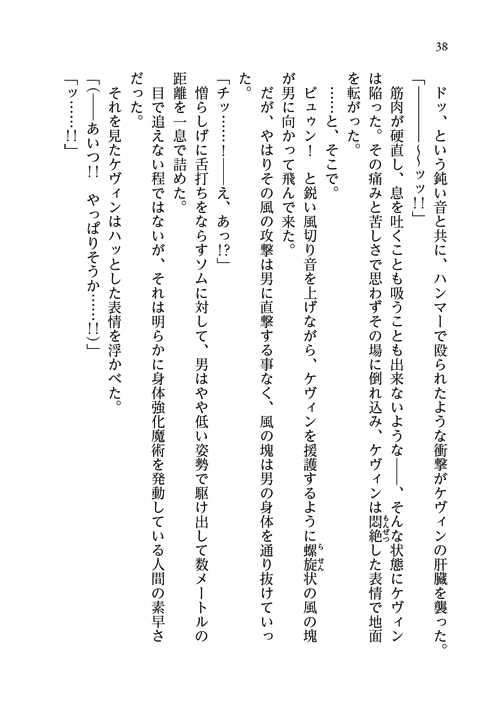 38
ドッ、という鈍い音と共に、ハンマーで殴られたような衝撃がケヴィンの肝臓を襲った。
「――――～～ッッ!!」
筋肉が硬直し、息を吐くことも吸うことも出来ないような――、そんな状態にケヴィン
は陥った。その痛みと苦しさで思わずその場に倒れ込み、ケヴィンは悶絶した表情で地面
を転がった。
……と、そこで。
ビュゥン！　と鋭い風切り音を上げながら、ケヴィンを援護するように螺旋状の風の塊
が男に向かって飛んで来た。
だが、やはりその風の攻撃は男に直撃する事なく、風の塊は男の身体を通り抜けていっ
た。
「チッ……！――え、あっ!?」
憎らしげに舌打ちをならすソムに対して、男はやや低い姿勢で駆け出して数メートルの
距離を一息で詰めた。
目で追えない程ではないが、それは明らかに身体強化魔術を発動している人間の素早さ
だった。
それを見たケヴィンはハッとした表情を浮かべた。
「（――あいつ!!　やっぱりそうか……!!）」
「ッ……!!」